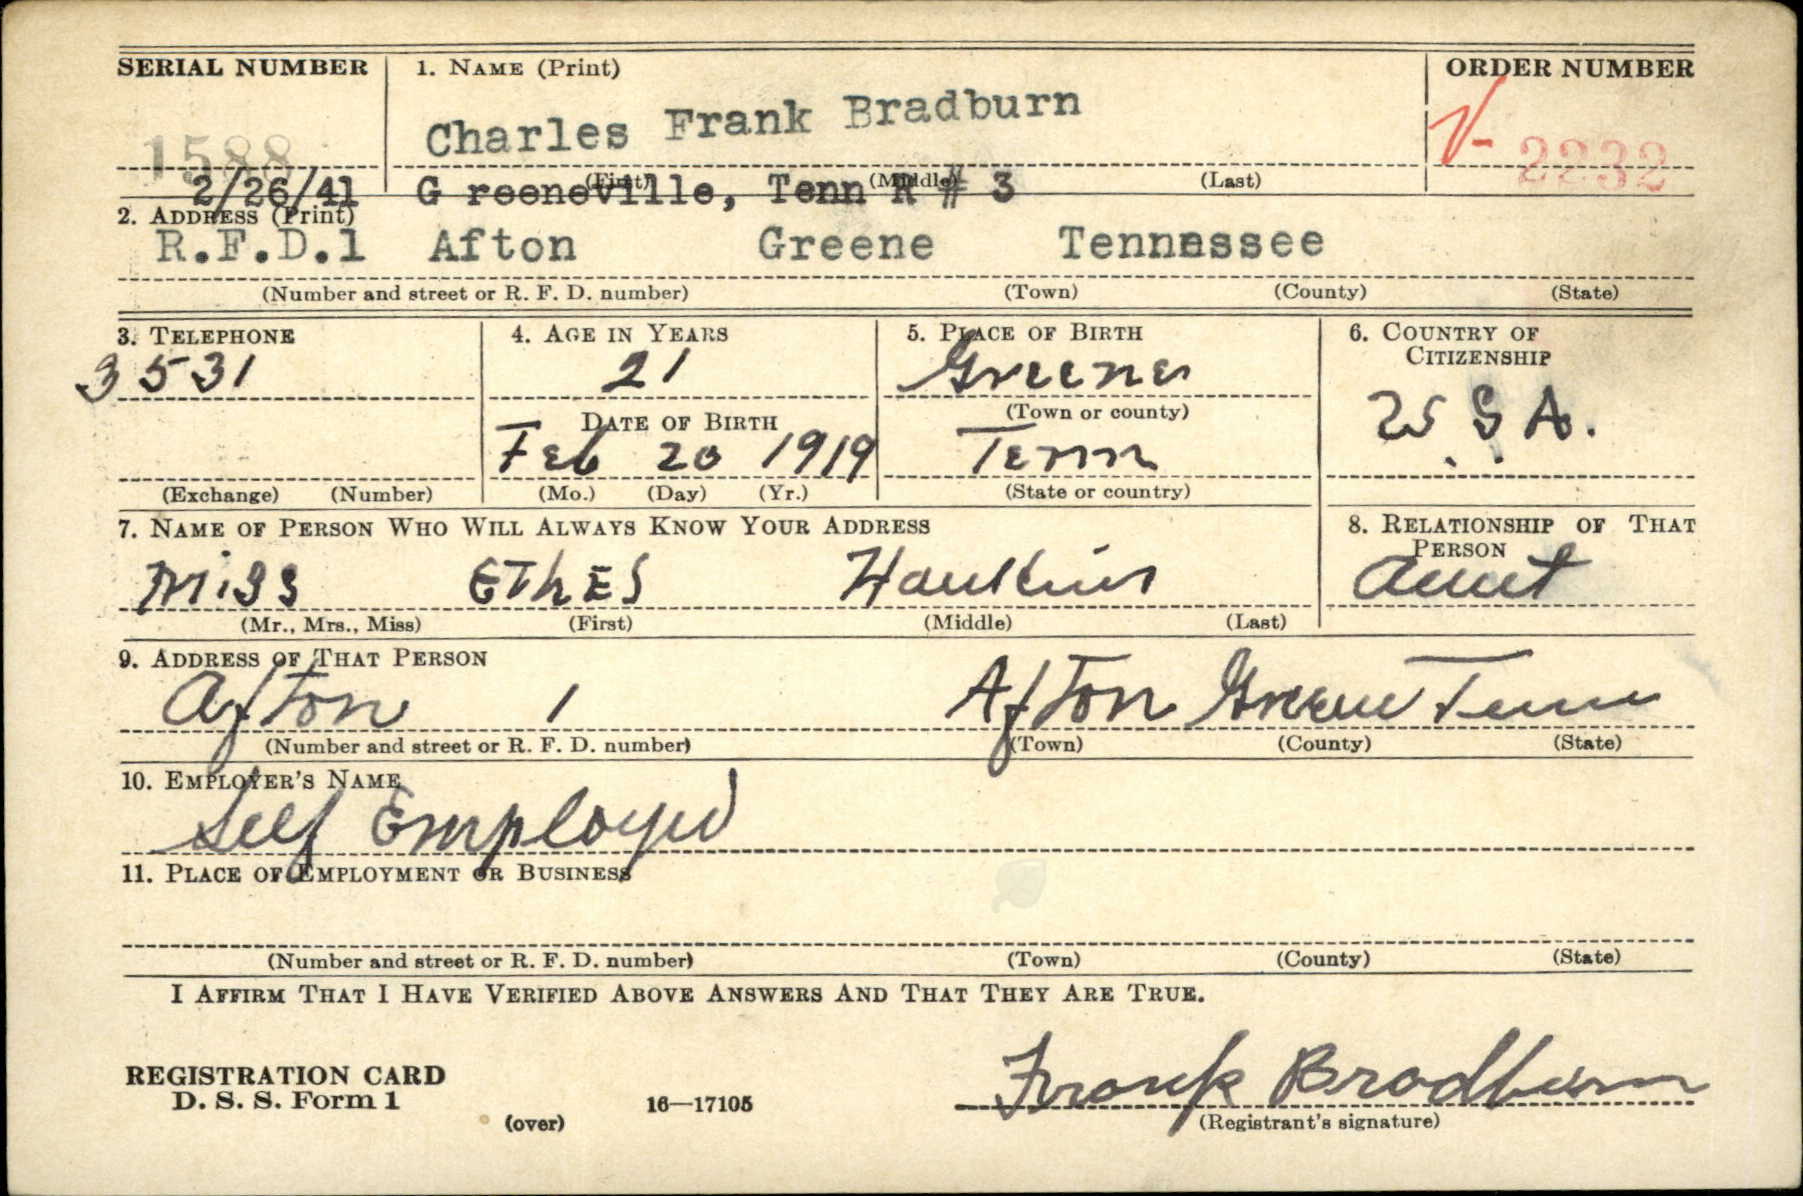 SERIAL NUMBER 1. NAME (Print) ORDER NUMBER
1588 Charles Frank Bradburn V- 2232
(First) (Middle) (Last)
2/26/41 Greeneville, Tenn R # 3
2. ADDRESS (Print)
R.F.D.1 Afton Greene Tennessee
(Number and street or R. F. D. number) (Town) (County) (State)
3. TELEPHONE 4. AGE IN YEARS 5. PLACE OF BIRTH 6. COUNTRY OF CITIZENSHIP
3531 21 Greene U S A.
DATE OF BIRTH (Town or county)
Feb 20 1919 Tenn
(Exchange) (Number) (Mo.) (Day) (Yr.) (State or country)
7. NAME OF PERSON WHO WILL ALWAYS KNOW YOUR ADDRESS 8. RELATIONSHIP OF THAT PERSON
Miss Haukins Aunt
(Mr., Mrs., Miss) (First) (Middle) (Last)
9. ADDRESS OF THAT PERSON
Afton 1 Afton Greene Tenn
(Number and street or R. F. D. number) (Town) (County) (State)
10. EMPLOYER'S NAME
Self Employed
11. PLACE OF EMPLOYMENT OR BUSINESS
(Number and street or R. F. D. number) (Town) (County) (State)
I AFFIRM THAT I HAVE VERIFIED ABOVE ANSWERS AND THAT THEY ARE TRUE.
REGISTRATION CARD
D. S. S. Form 1
(over) 16—17105
Frank Bradburn
(Registrant's signature)